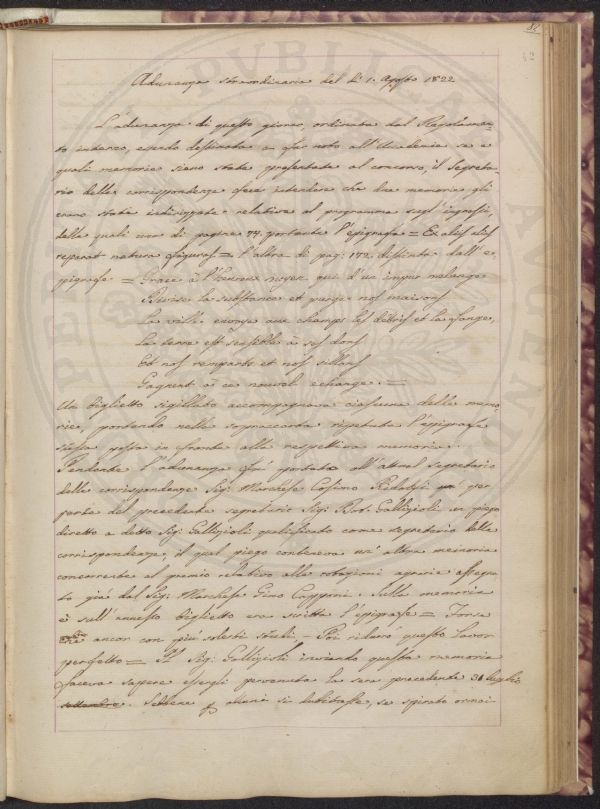 82
Adunanza straordinaria del dì 1. Agosto 1822
L'adunanza di questo giorno, ordinata dal Regolamen-
to interno, essendo destinata a far noto all'Accademia se e
quali memorie siano state presentate al concorso, il Segreta-
rio delle corrispondenze fece intendere che due memorie gli
erano state indirizzate relative al programma sugl'ingrassi,
delle quali una di pagine 74. portante l'epigrafe = Ex aliis alias
reparat natura figuras = l'altra di pag: 172. distinta dall'e-
pigrafe = Grace à l'heureux noyer qui d'un impur mélange
La substance et purge nos maisons
La ville envoye aux champs les débris et la fange,
La terre est sensible à ses dons
Et nos remparts et nos sillons
Gagnent à ce nouvel echange. =
Un biglietto sigillato accompagnava ciascuna delle memo-
rie, portando nella sopraccarta ripetuta l'epigrafe
stessa posta in fronte alla respettiva memoria.
Pendente l'adunanza fu portato all'attual segretario
delle corrispondenze Sig: Marchese Cosimo Ridolfi per
parte del precedente segretario Sig: Gallizioli un piego
diretto a detto Sig: Gallizioli qualificato come segretario delle
corrispondenze, il qual piego conteneva un'altra memoria
concorrente al premio relativo alle rotazioni agrarie assegna-
to già dal Sig: Marchese Gino Capponi. Sulla memoria
e sull'annesso biglietto era scritta l'epigrafe = Forse
ancor con più
perfetto = Il Sig: Gallizioli inviando questa memoria
faceva sapere essergli pervenuta la sera precedente 31 luglio
settembre. Sebbene alcuni si dubitasse, se spirato ormai